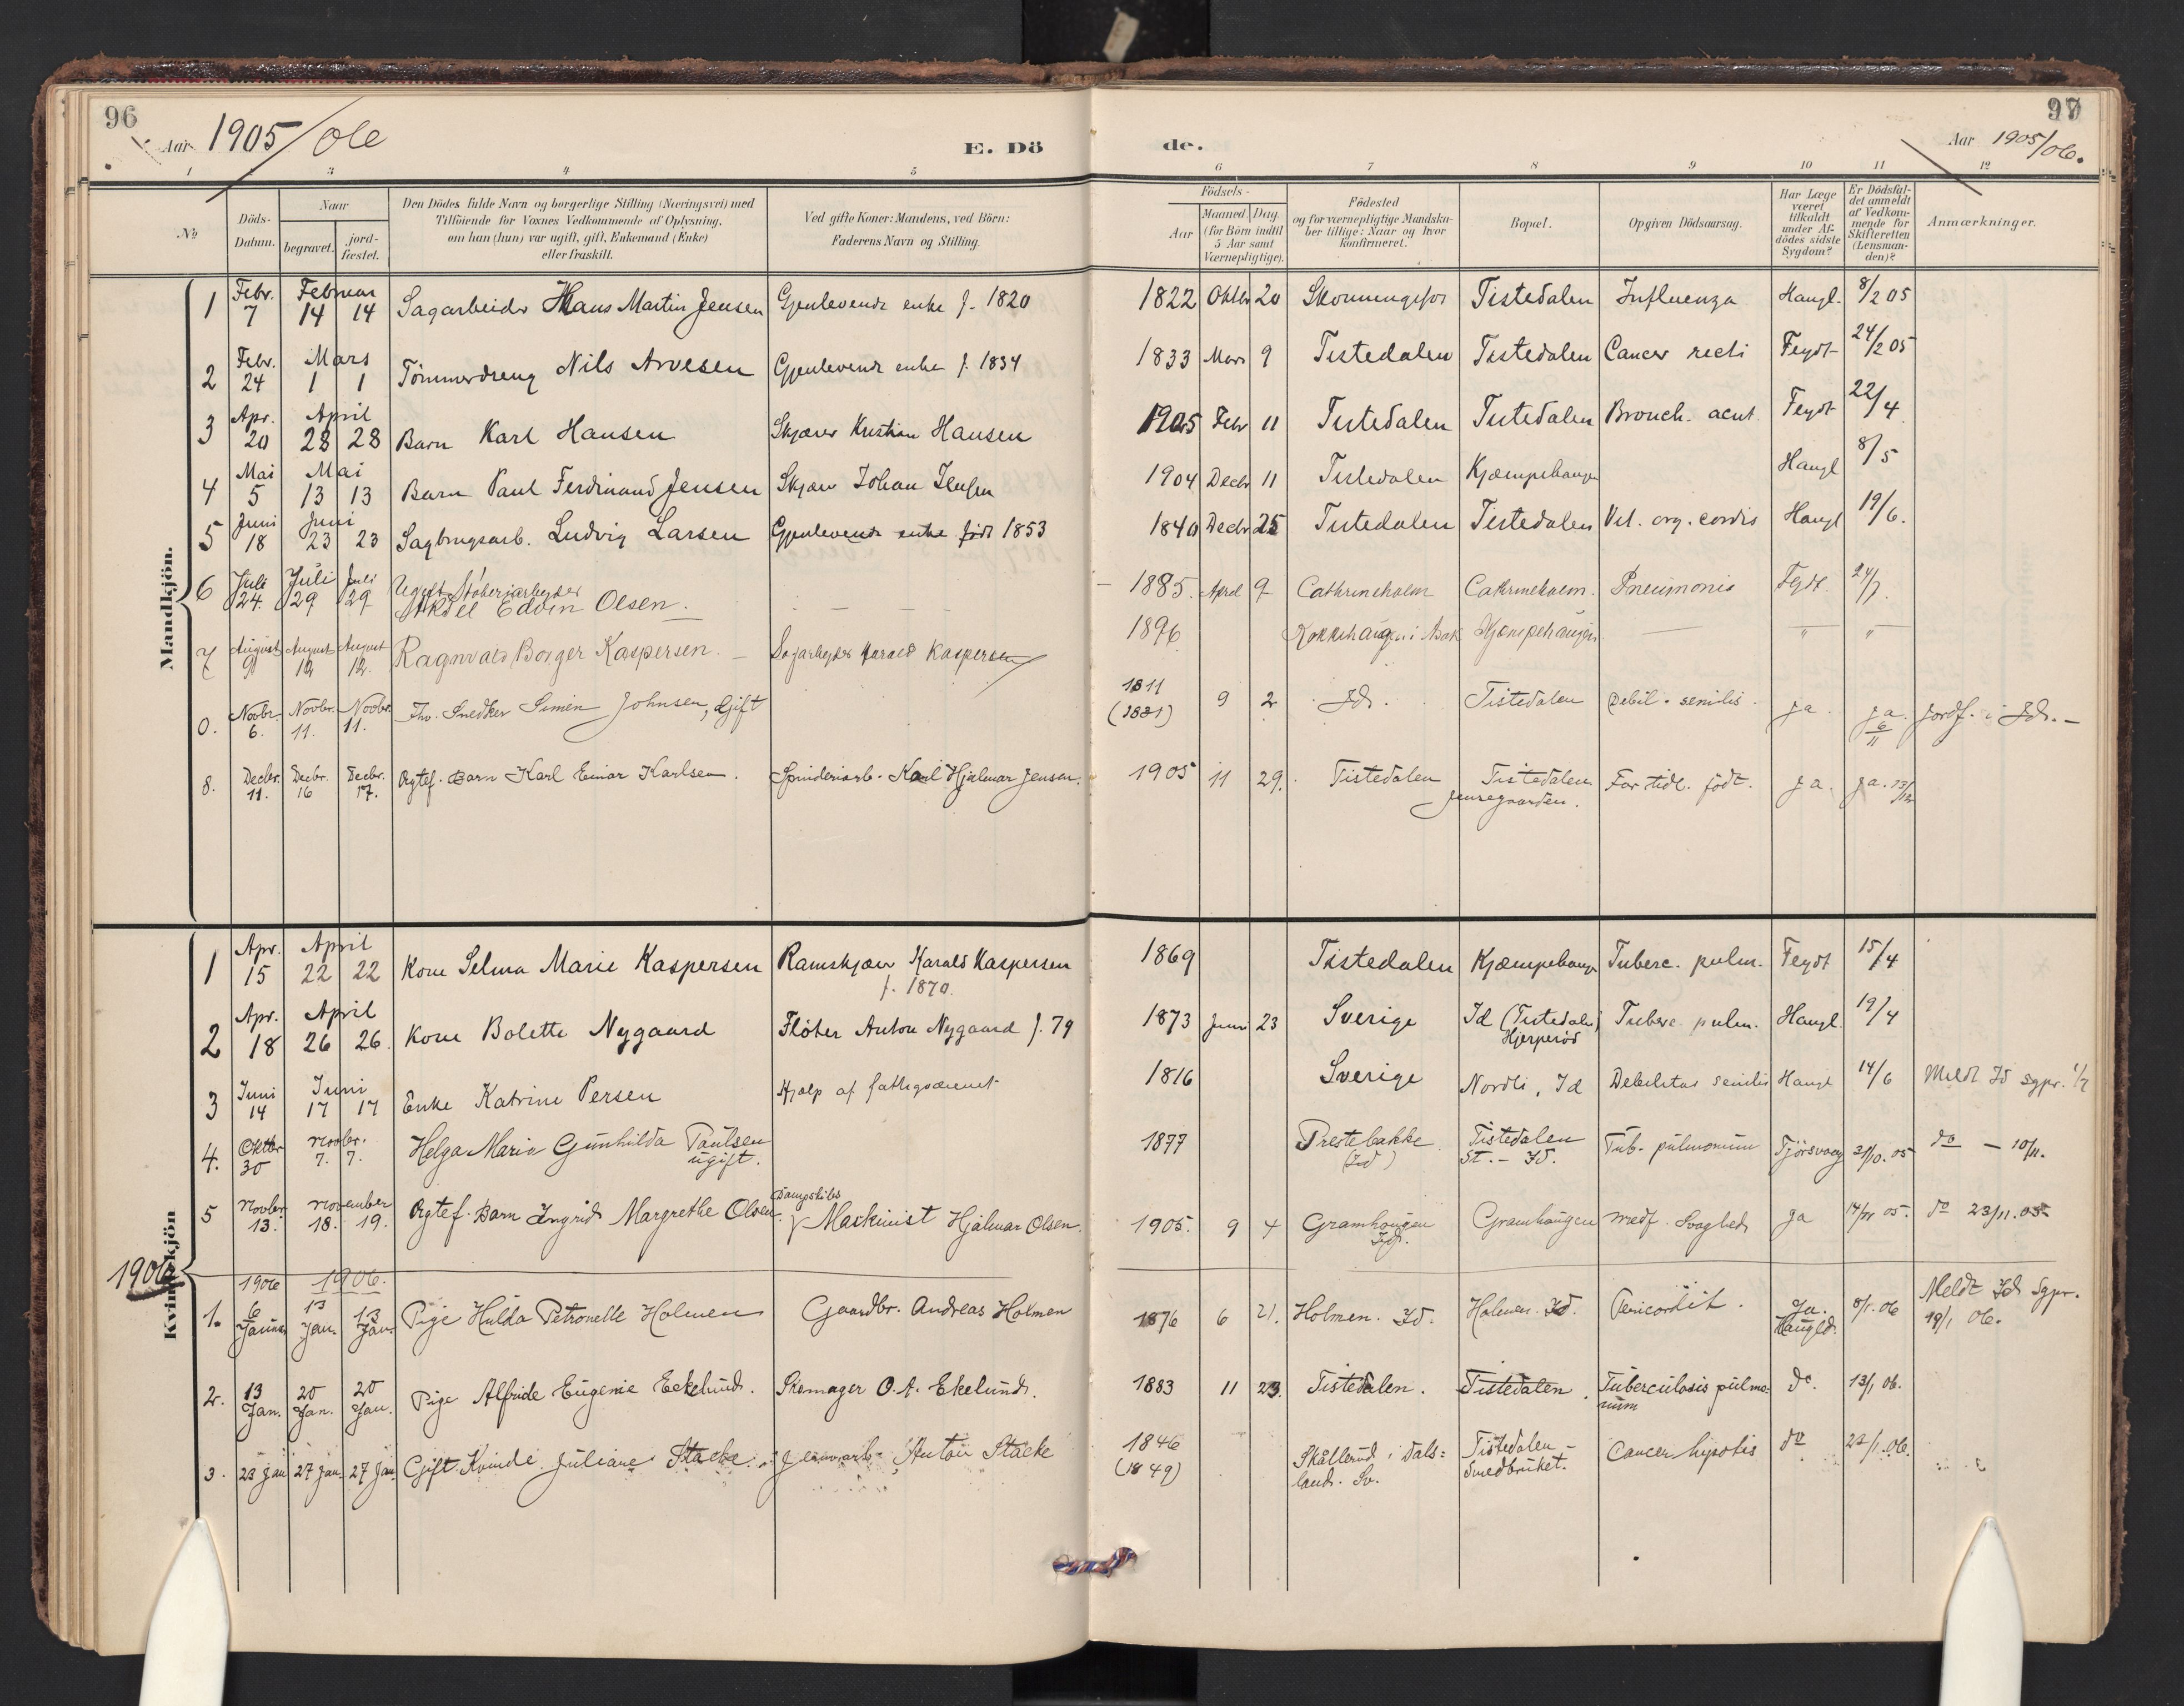 96
97
Aar 1905/06
E. Dö
de.
Aar 1905/06.
1 2 3 4 5 6 7 8 9 10 11 12
No
Döds-
Datum.
Naar
begravet.
jord-
fæstet.
Den Dödes fulde Navn og borgerlige Stilling (Næringsvei) med
Tilföiende for Voxnes Vedkommende af Oplysning,
om han (hun) var ugift, gift, Enkemand (Enke)
eller fraskilt.
Ved gifte Koner: Mandens, ved Börn:
Faderens Navn og Stilling.
Födsels-
Aar
Maaned. Dag
(for Börn indtil
5 Aar samt
Værnepligtige).
Födested
og for værnepligtige Mandska-
ber tillige: Naar og hvor
konfirmeret.
Bopæl.
Opgiven Dödsaarsag.
Har Læge
været
tilkaldt
under Af-
dödes sidste
Sygdom?
Er Dödsfal-
det anmeldt
af Vedkom-
mende for
Skifteretten
(Lensman-
den)?
Anmærkninger.
Mandkjön.
1 Febr. 7 Februar 14 14 Sagarbeider Hans Martin Jensen Gjenlevende enke f. 1820 1822 Oktbr 20 Skonningsfos Tistedalen Influenza Haugl. 8/2 05
2 Febr. 24 Mars 1 1 Tømmerdreng Nils Arvesen Gjenlevende enke f. 1834 1833 Mars 9 Tistedalen Tistedalen Cancer recti Feydt 24/2 05
3 Apr. 20 April 28 28 Barn Karl Hansen Skjærer Kristian Hansen 1905 Febr 11 Tistedalen Tistedalen Bronch. acut. Feydt 22/4
4 Mai 5 Mai 13 13 Barn Paul Ferdinand Jensen Skjærer Johan Jensen 1904 Decbr 11 Tistedalen Kjæmpehaugen Haugl 8/5
5 Juni 18 Juni 23 23 Sagbrugsarb. Ludvig Larsen Gjenlevende enke født 1853 1840 Decbr 25 Tistedalen Tistedalen Vit. org. cordis Haugl 19/6.
6 Juli 24. Juli 29 Juli 29 Ugift Støberiarbeyder
Aksel Edvin Olsen. — — — 1885. April 9 Cathrineholm Cathrineholm. Pneumonie Feydt. 24/7.
7 August 9 August 12 August 12. Ragnvald Borger Kaspersen. — Sagarbeyder Harald Kaspersen 1896 Kokkehaugen i Asak Kjæmpehaugen — " "
0. Novbr. 6. Novbr. 11. Novbr. 11. Fhv. Snedker Simen Johnsen, Gift 1811
(1821) 9 2 Id. Tistedalen Debil. senilis. ja. ja. 6/11 Jordf. i Id. —
8. Decbr. 11. Decbr. 16 Decbr. 17. Ægtef. Barn Karl Einar Karlsen. Spinderiarb. Karl Hjalmar Jensen. 1905 11 29. Tistedalen Tistedalen
Jensegaarden. For tidl. født. ja. ja. 13/12
Kvindekjön
1 Apr. 15 April 22 22 Kone Selma Marie Kaspersen Ramskjærer Harald Kaspersen
f. 1870. 1869 Tistedalen Kjæmpehaugen Tuberc. pulm. Feydt 15/4
2 Apr. 18 April 26 26. Kone Bolette Nygaard Fløter Anton Nygaard f. 79 1873 Juni 23 Sverige Id (Tistedalen)
Hjerperød Tuberc. pulm. Haugl. 19/4
3 Juni 14 Juni 17 17 Enke Katrine Persen Hjælp af fattigvæsenet 1816 Sverige Nordli, Id Debilitas senilis Haugl 14/6 Meldt Id sgpr. 1/7
4. Oktbr 30 Novbr. 7. 7. Helga Maria Gunhilda Paulsen
ugift. 1877 Prestebakke
(Id) Tistedalen
St. — Id. Tub. pulmonum Tjörsvaag 31/10. 05 do — 10/11.
5 Novbr 13. November 18. 19. Ægtef. Barn Ingrid Margrethe Olsen. Dampskibs
Maskinist Hjalmar Olsen. 1905. 9 4 Gramhaugen
Id. Gramhaugen Medf. Svaghed ja 14/11 05. do 23/11.05
1906
1906 1906.
1. 6 Januar 13 Jan. 13 Jan. Pige Hulda Petronelle Holmen Gaardbr. Andreas Holmen 1876 6 21. Holmen. Id. Holmen. Id. Pericordit. Ja.
Haugld. 8/1.06 Meldt Id Sgpr.
19/1 06.
2. 13 Jan. 20 Jan. 20 Jan. Pige Alfride Eugenie Eckelund. Skomager O. A. Ekelund. 1883 11 23. Tistedalen. Tistedalen. Tuberculosis pulmo-
num do. 13/1 06.
3. 23 Jan 27 Jan. 27 Jan. Gift Kvinde Juliane Stacke. Jernvarb. Anton Stacke 1846
(1849) Skållerud i Dals=
land. Sv. Tistedalen —
Smedbruket. Cancer hepatis do 23/1.06.